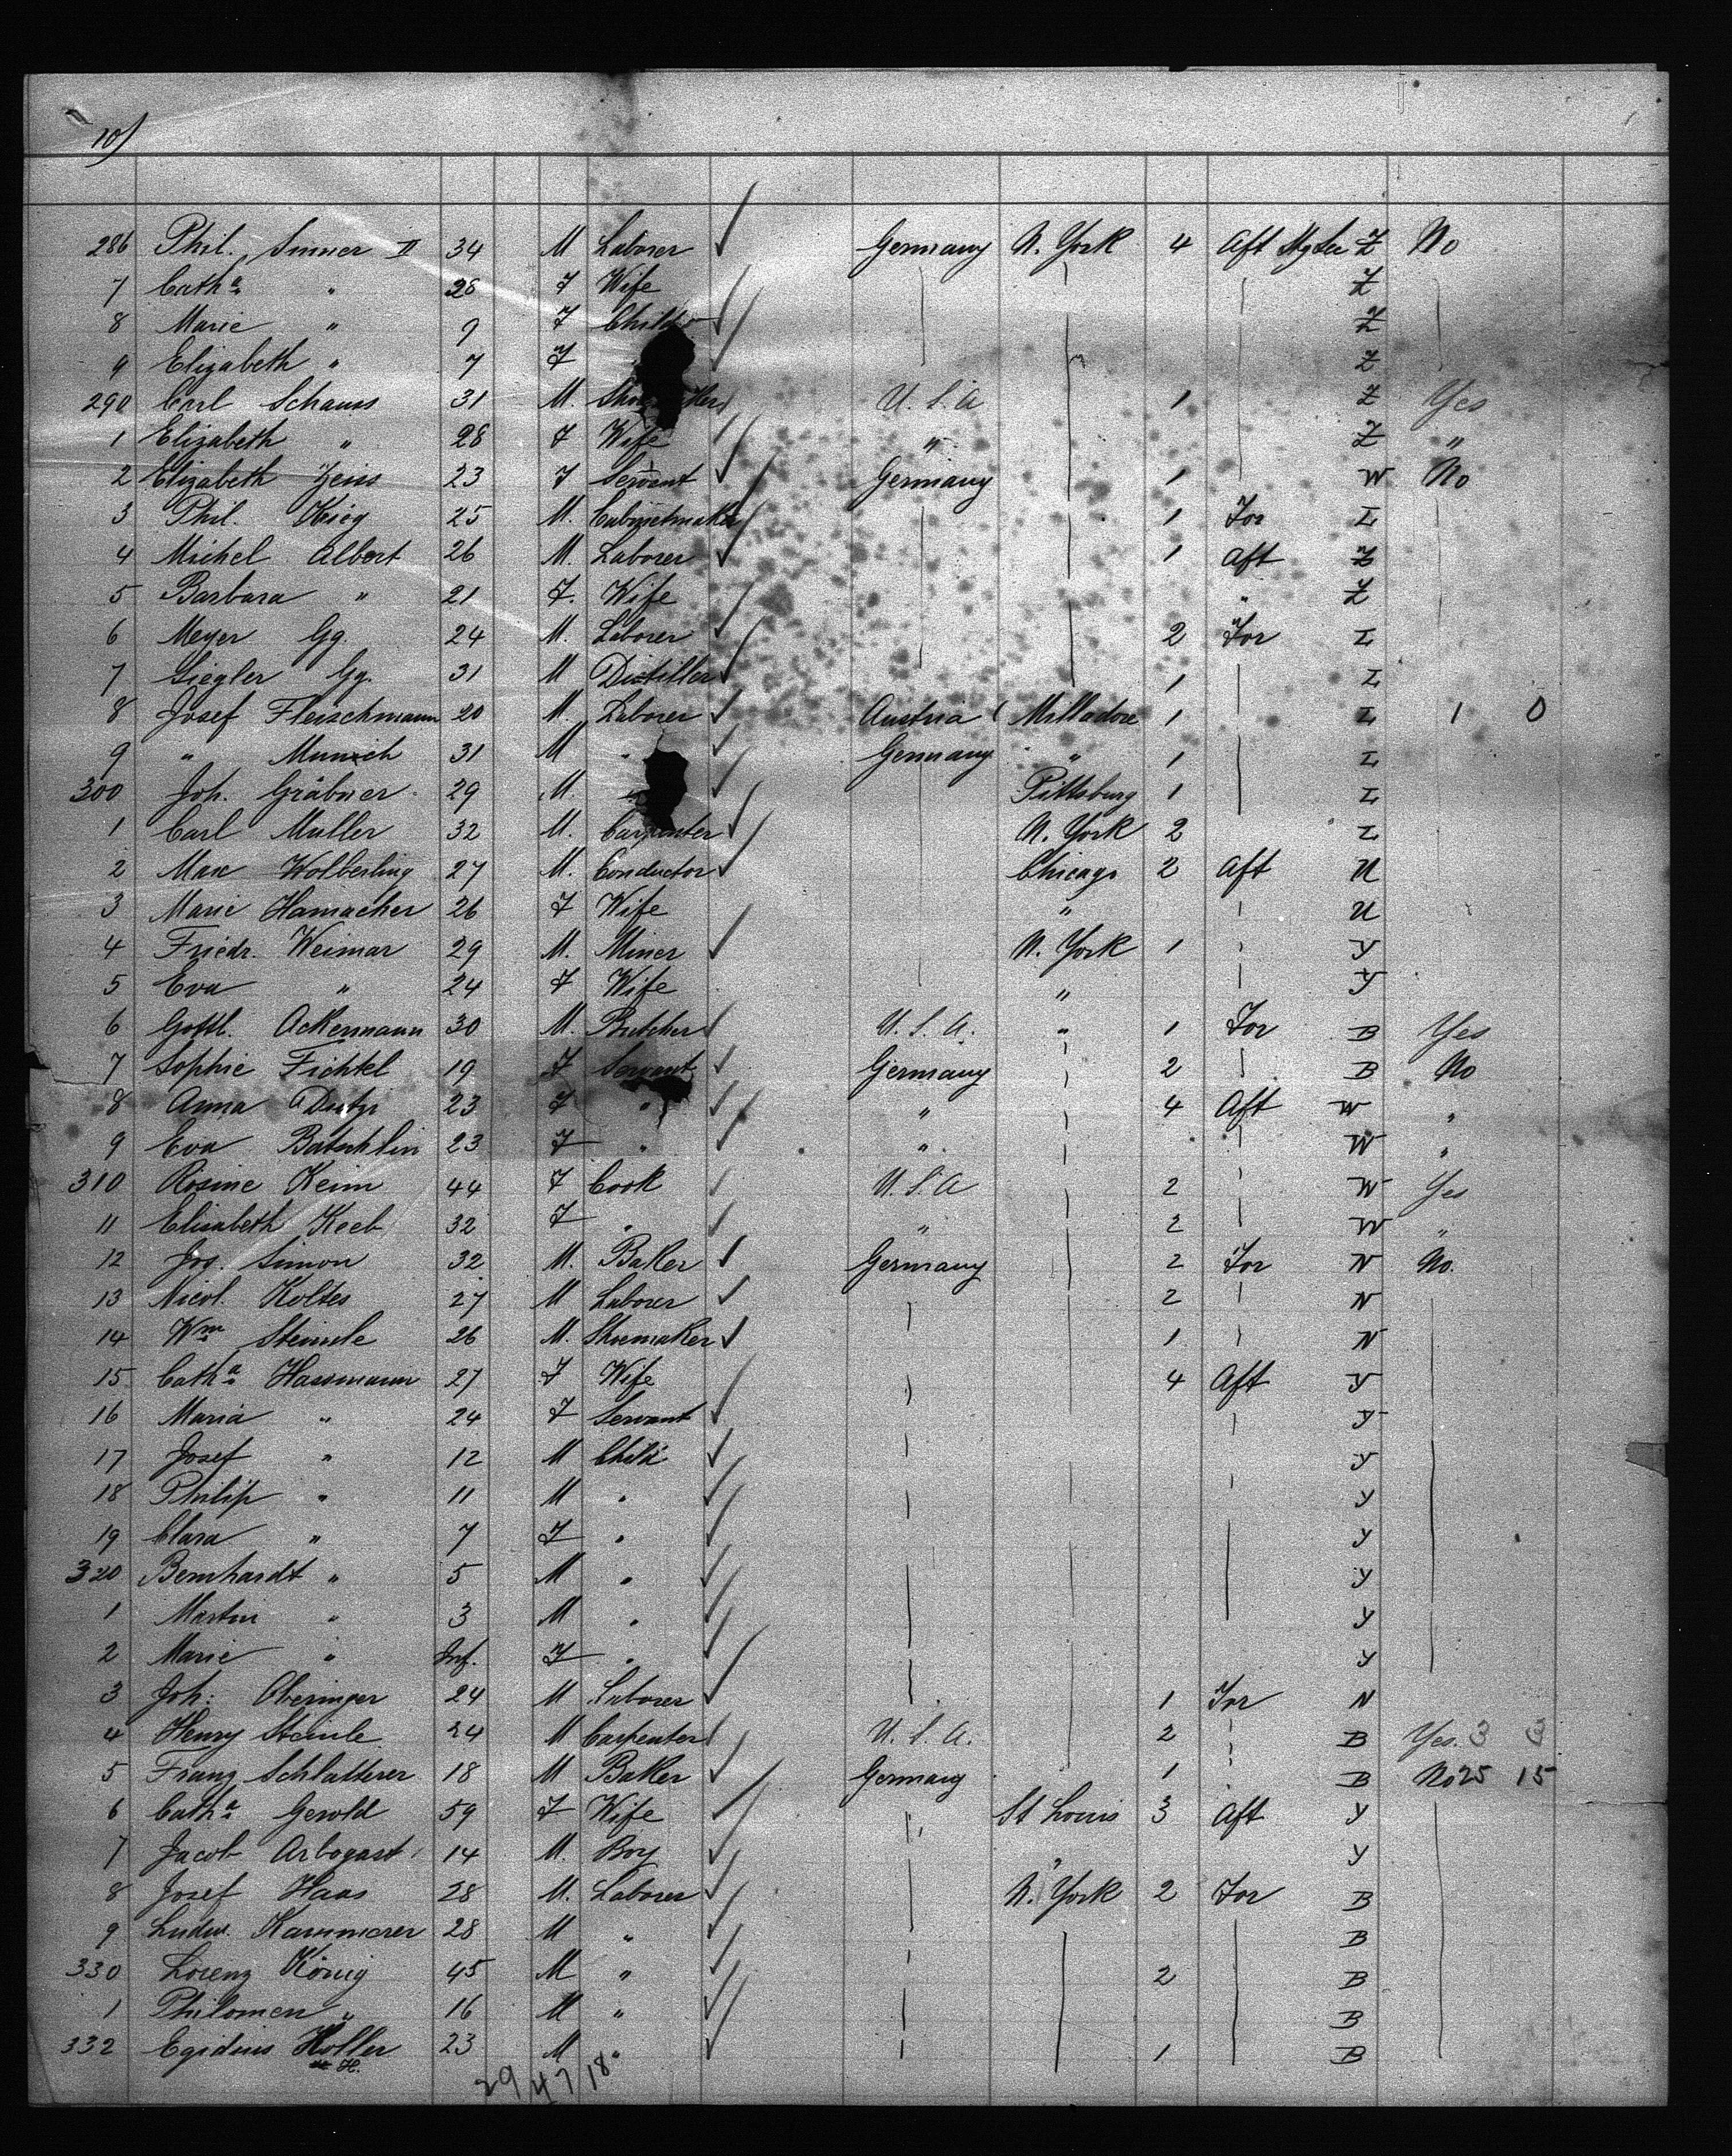 10)
286 Phil. Sinner II 34 M Laborer Germany N. York 4 Aft Z No
7 Cath a " 28 F Wife Z
8 Marie " 9 F Child Z
9 Elizabeth " 7 F Z
290 Carl Schauss 31 M. U.S.A 1 Z Yes
1 Elizabeth " 28 F Wife " Z "
2 Elizabeth Zeiss 23 F Servant Germany 1 W No
3 Phil. Krieg 25 M. Cabinetmaker 1 For L
4 Michel Albert 26 M. Laborer 1 Aft Z
5 Barbara " 21 F. Wife " Z
6 Meyer Gg. 24 M. Laborer 2 For L
7 Ziegler Gg. 31 M Distiller 1 L
8 Josef Fleischmann 20 M. Laborer Austria Milladore 1 L 1 0
9 " Munich 31 M " Germany " 1 L
300 Joh. Gräbner 29 M. " Pittsburg 1 L
1 Carl Muller 32 M. Carpenter N. York 2 L
2 Max Wolberling 27 M. Conductor Chicago 2 Aft U
3 Marie Hamacher 26 F Wife " U
4 Friedr. Weimar 29 M. Miner N. York 1 Y
5 Eva " 24 F Wife " Y
6 Gottl. Ackermann 30 M. Butcher U.S.A. " 1 For B Yes
7 Sophie Fichtel 19 F Servant Germany 2 B No
8 Anna 23 F " " 4 Aft W "
9 Eva 23 F " " W "
310 Rosine Keim 44 F Cook U.S.A 2 W Yes
11 Elisabeth Keeb 32 F " " 2 W "
12 Jos. Simon 32 M. Baker Germany 2 For N No.
13 Nicol. Koltes 27 M Laborer 2 N
14 Wm Steinle 26 M. Shoemaker 1 N
15 Cath a Hassmann 27 F Wife 4 Aft Y
16 Maria " 24 F Servant Y
17 Josef " 12 M Child Y
18 Philip " 11 M " Y
19 Clara " 7 F " Y
320 Bernhardt " 5 M " Y
1 Martin " 3 M " Y
2 Marie " Inf. F " Y
3 Joh: Oberinger 24 M Laborer 1 For N
4 Henry Steinle 24 M Carpenter U.S.A. 2 B Yes. 3 3
5 Franz Schlatterer 18 M Baker Germany 1 B No 25 15
6 Cath a Gerold 59 F Wife St Louis 3 Aft Y
7 Jacob Arbogast 14 M. Boy " Y
8 Josef Haas 28 M. Laborer N. York 2 For B
9 Ludw. Kammerer 28 M " B
330 Lorenz König 45 M " 2 B
1 Philomen " 16 M " B
332 Egidius Koller 23 M " 1 B
H.
29 47 18